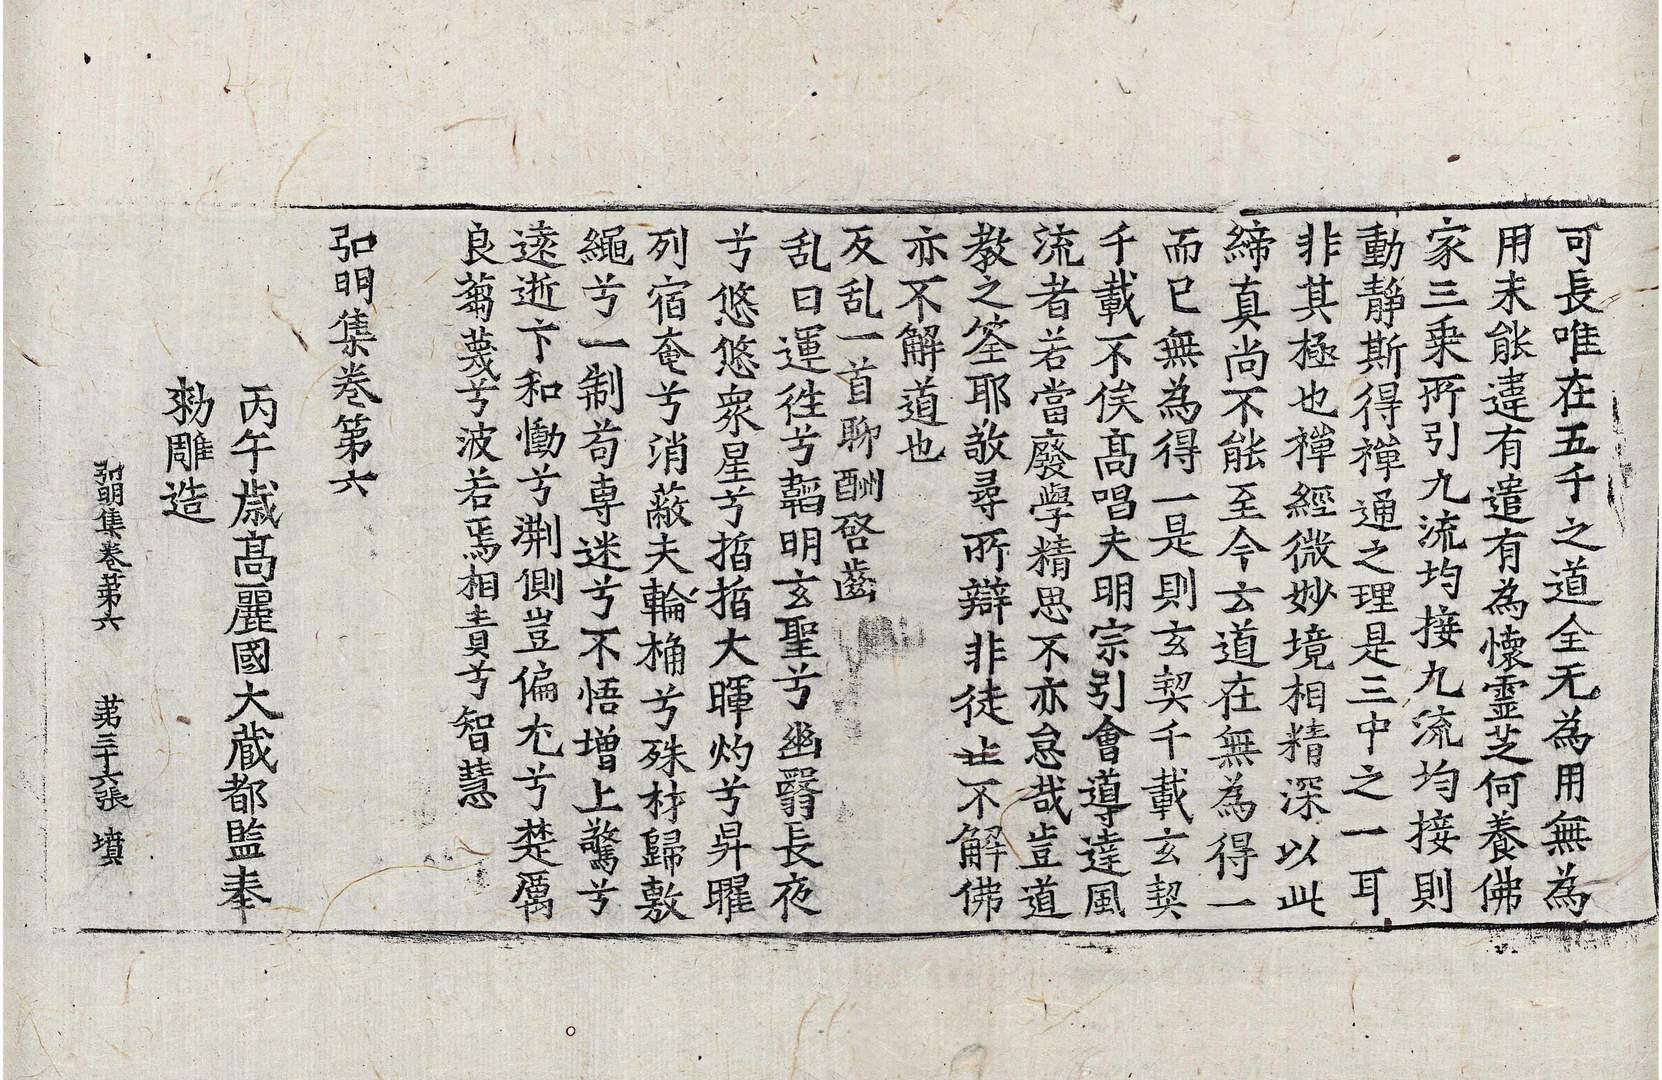 可長唯在五千之道全无為用無為
用未能違有遣有為懷靈芝何養佛
家三乗所引九流均接九流均接則
動靜斯得禪通之理是三中之一耳
非其極也禪經微妙境相精深以此
締真尚不能至今云道在無為得一
而已無為得一是則玄契千載玄契
千載不俟髙唱夫明宗引會導達風
流者若當廢學精思不亦怠哉豈道
教之筌耶敬尋所辯非徒止不解佛
亦不解道也
反乱一首聊酬啓齒
乱曰運徃兮韜明玄聖兮幽翳長夜
兮悠悠衆星兮晢晢大暉灼兮昇曜
列宿奄兮消蔽夫輪桷兮殊材歸敷
繩兮一制苟専迷兮不悟增上驚兮
遠逝卞和慟兮荆側豈偏尤兮楚厲
良蒭蔑兮波若焉相責兮智慧
弘明集卷第六
丙午歲髙麗國大蔵都監奉
勑雕造
弘明集卷第六 第三十六張 墳